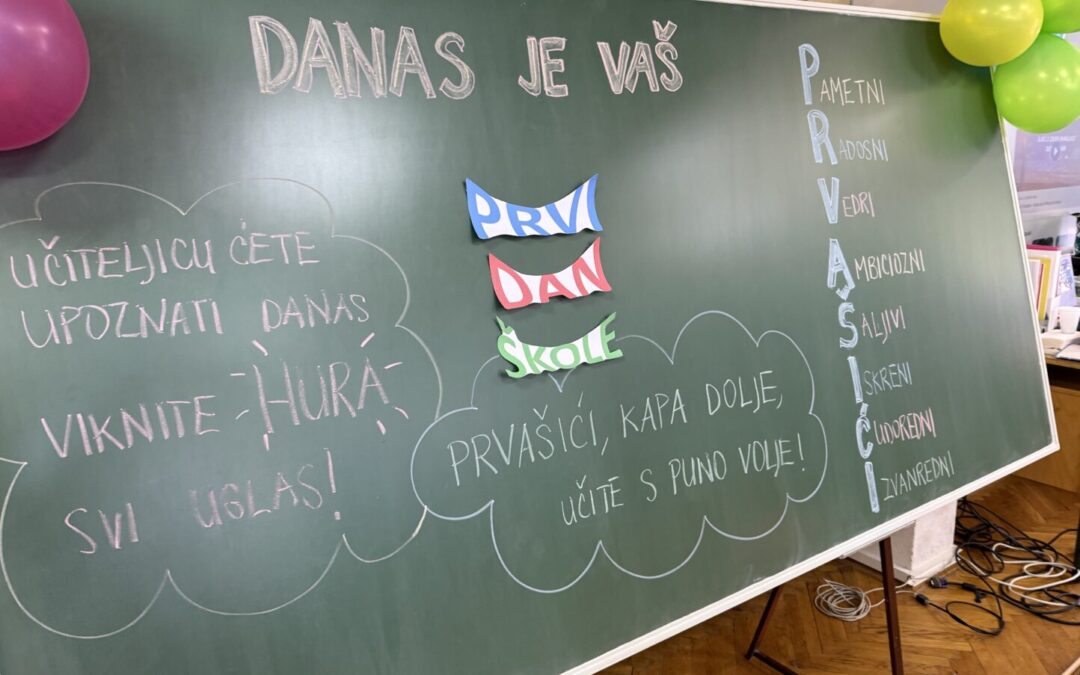 DANAS JE VAŠ
PRVI
DAN
ŠKOLE
UČITELJICU ĆETE
UPOZNATI DANAS
VIKNITE HURA
SVI UGLAS!
PRVAŠIĆI, KAPA DOLJE,
UČITE S PUNO VOLJE!
PAMETNI
RADOSNI
VEDRI
AMBICIOZNI
ŠALJIVI
ISKRENI
ĆUDOREDNI
IZVANREDNI